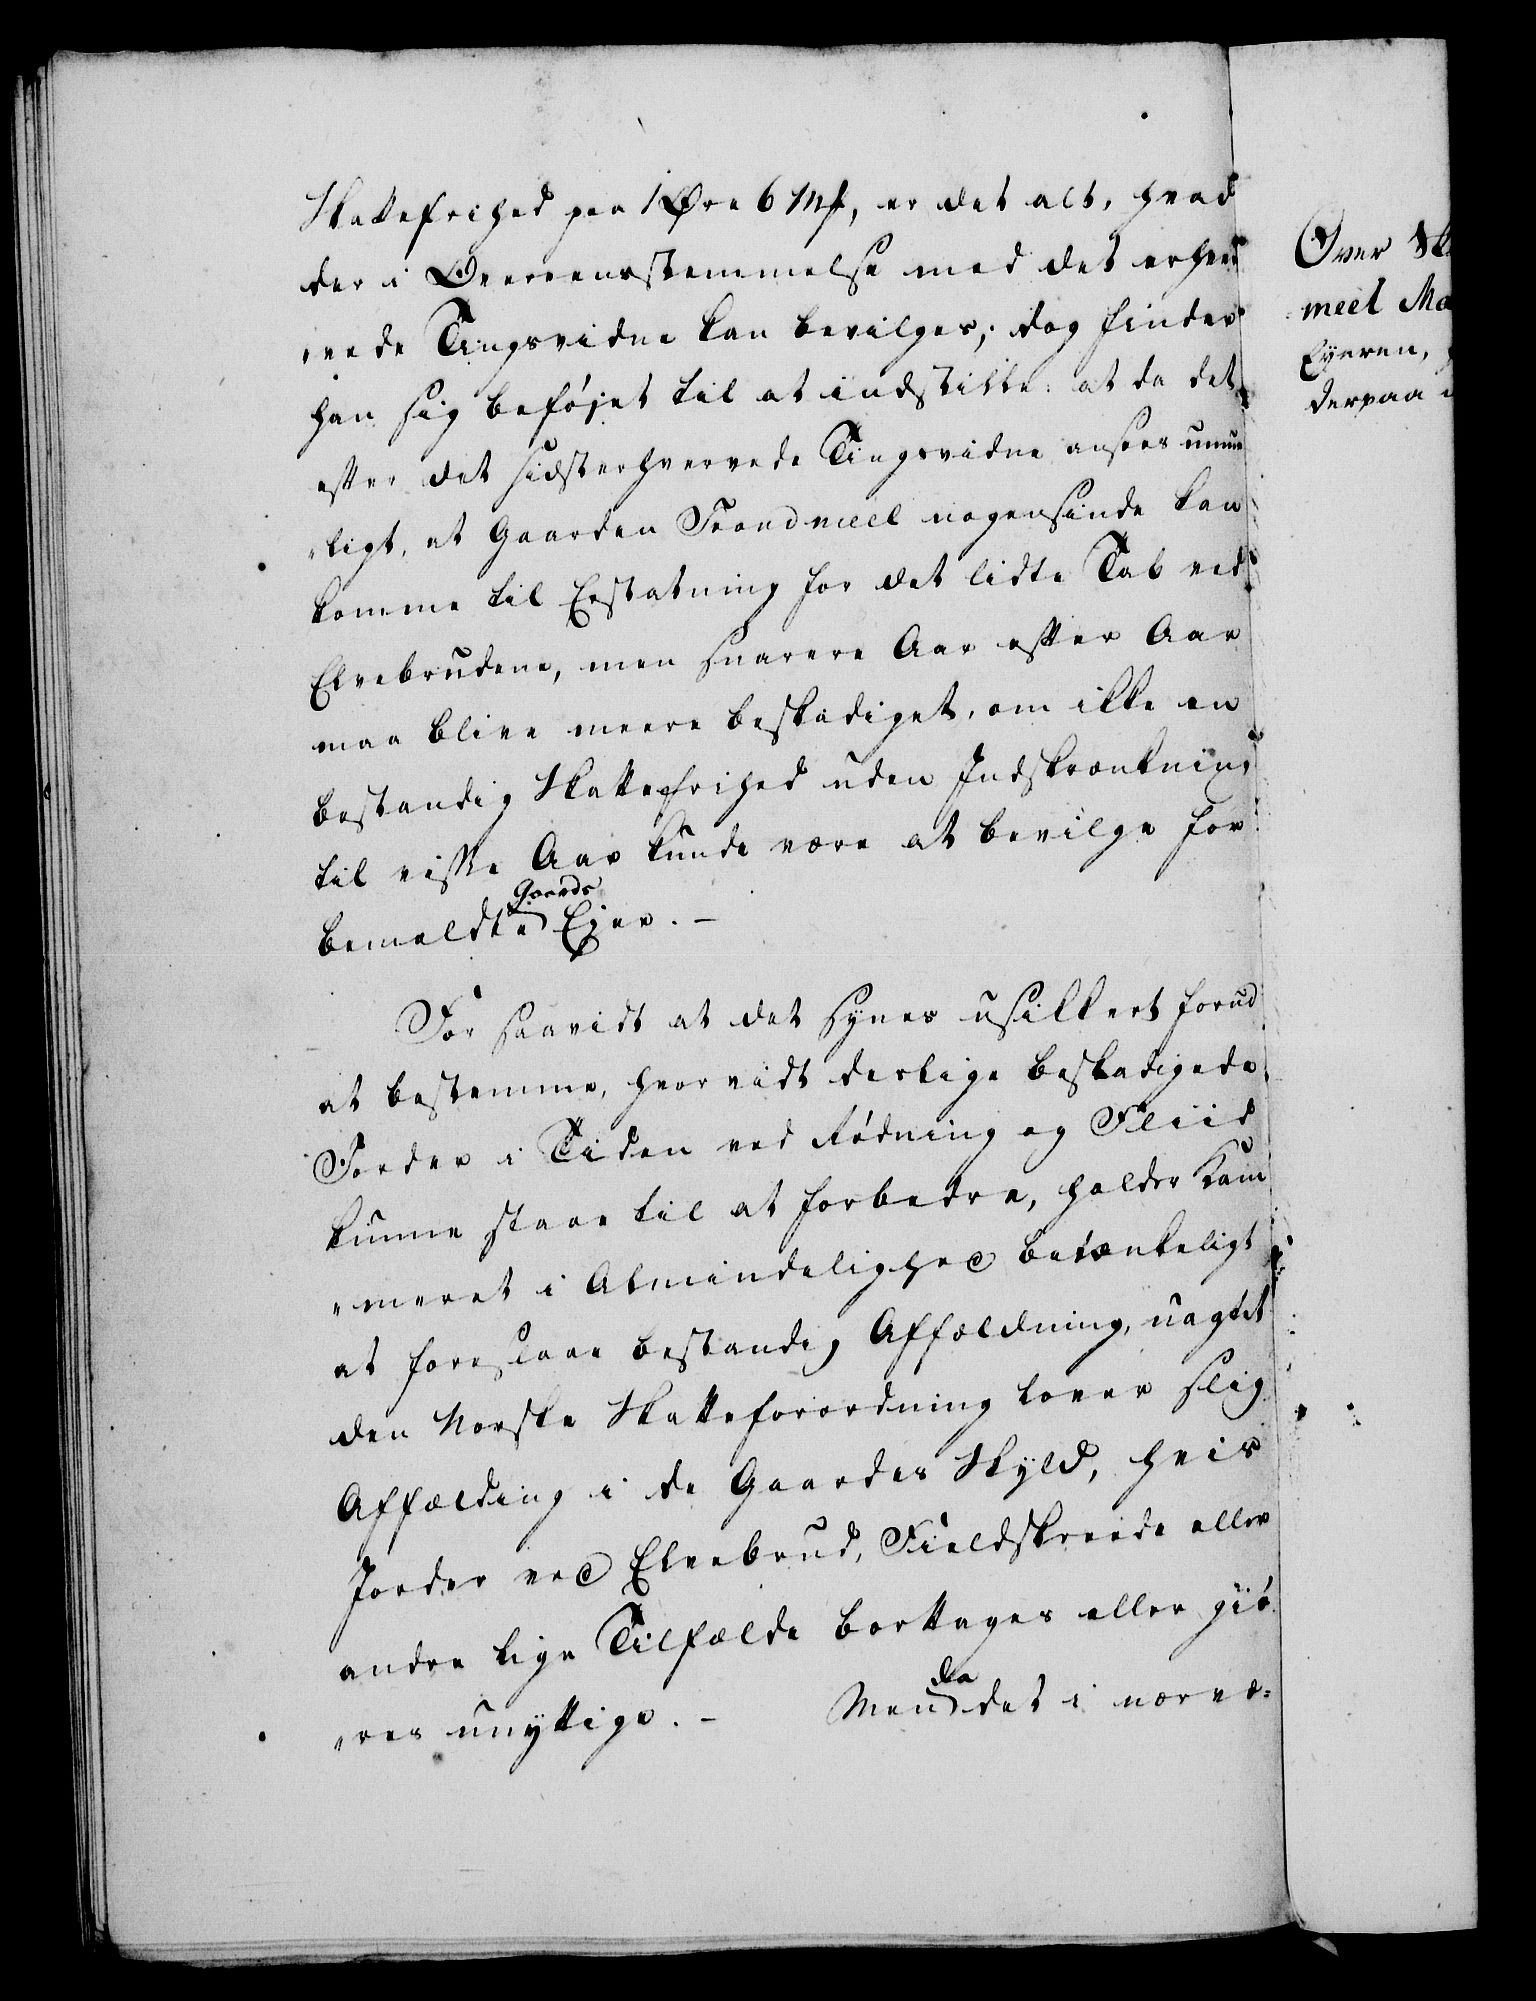 Skattefrihed paa 1 Øre 6 Mk, er det alt, hvad
der i Overeensstemmelse med det erhver
„vede Tingsvidne kan bevilges; dog finder
han sig beføjet til at indstille: at da det
efter det sidsterhvervede Tingsvidne ansees umue
„ligt, at Gaarden Trondmeel nogensinde kan
komme til Erstatning for det lidte Tab ved
Elvebrudene, men snarere Aar efter Aar
maa blive meere beskadiget, om ikke en
bestandig Skattefrihed uden Indskrænkning
til visse Aar kunde være at bevilge for
bemeldte Gaards Ejer. –
For saavidt at det synes usikkert forud
at bestemme, hvorvidt deslige beskadigede
Jorder i Tiden ved Rødning og Fliid
kunne staae til at forbedre, holder Kam
„meret i Almindelighed betænkeligt
at foreslaae bestandig Affældning, uagtet
den Norske Skatteforordning lover slig
Affælding i de Gaardes Skyld, hvis
Jorder ved Elvebrud, Fieldskreede eller
andre lige Tilfælde borttages eller giø
„res unyttige. – Men da det i nærvæ=
Over Sk
meel Ma
Ejeren,
derpaa